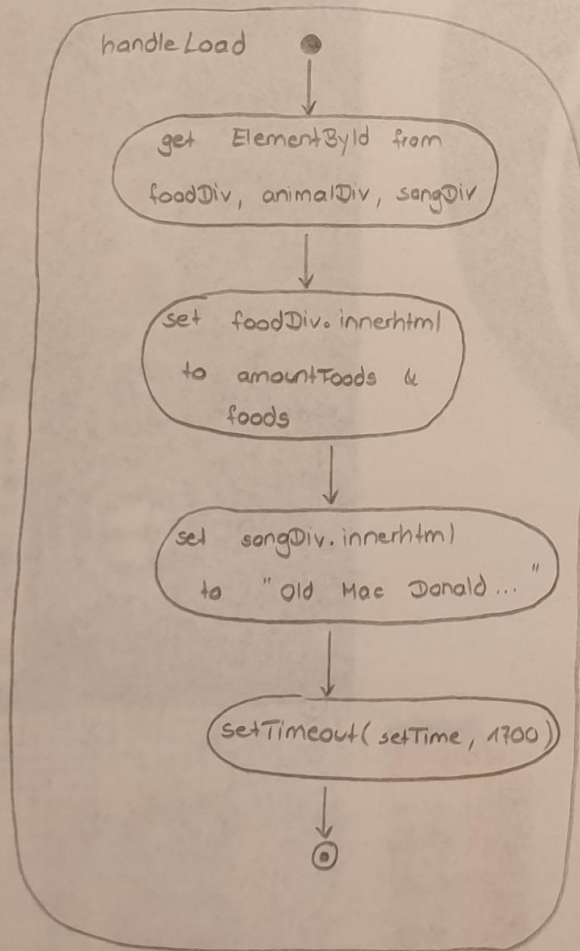 handleLoad
get ElementById from
foodDiv, animalDiv, songDiv
set foodDiv.innerhtml
to amountFoods &
foods
set songDiv.innerhtml
to "Old Mac Donald..."
setTimeout(setTime, 1700)